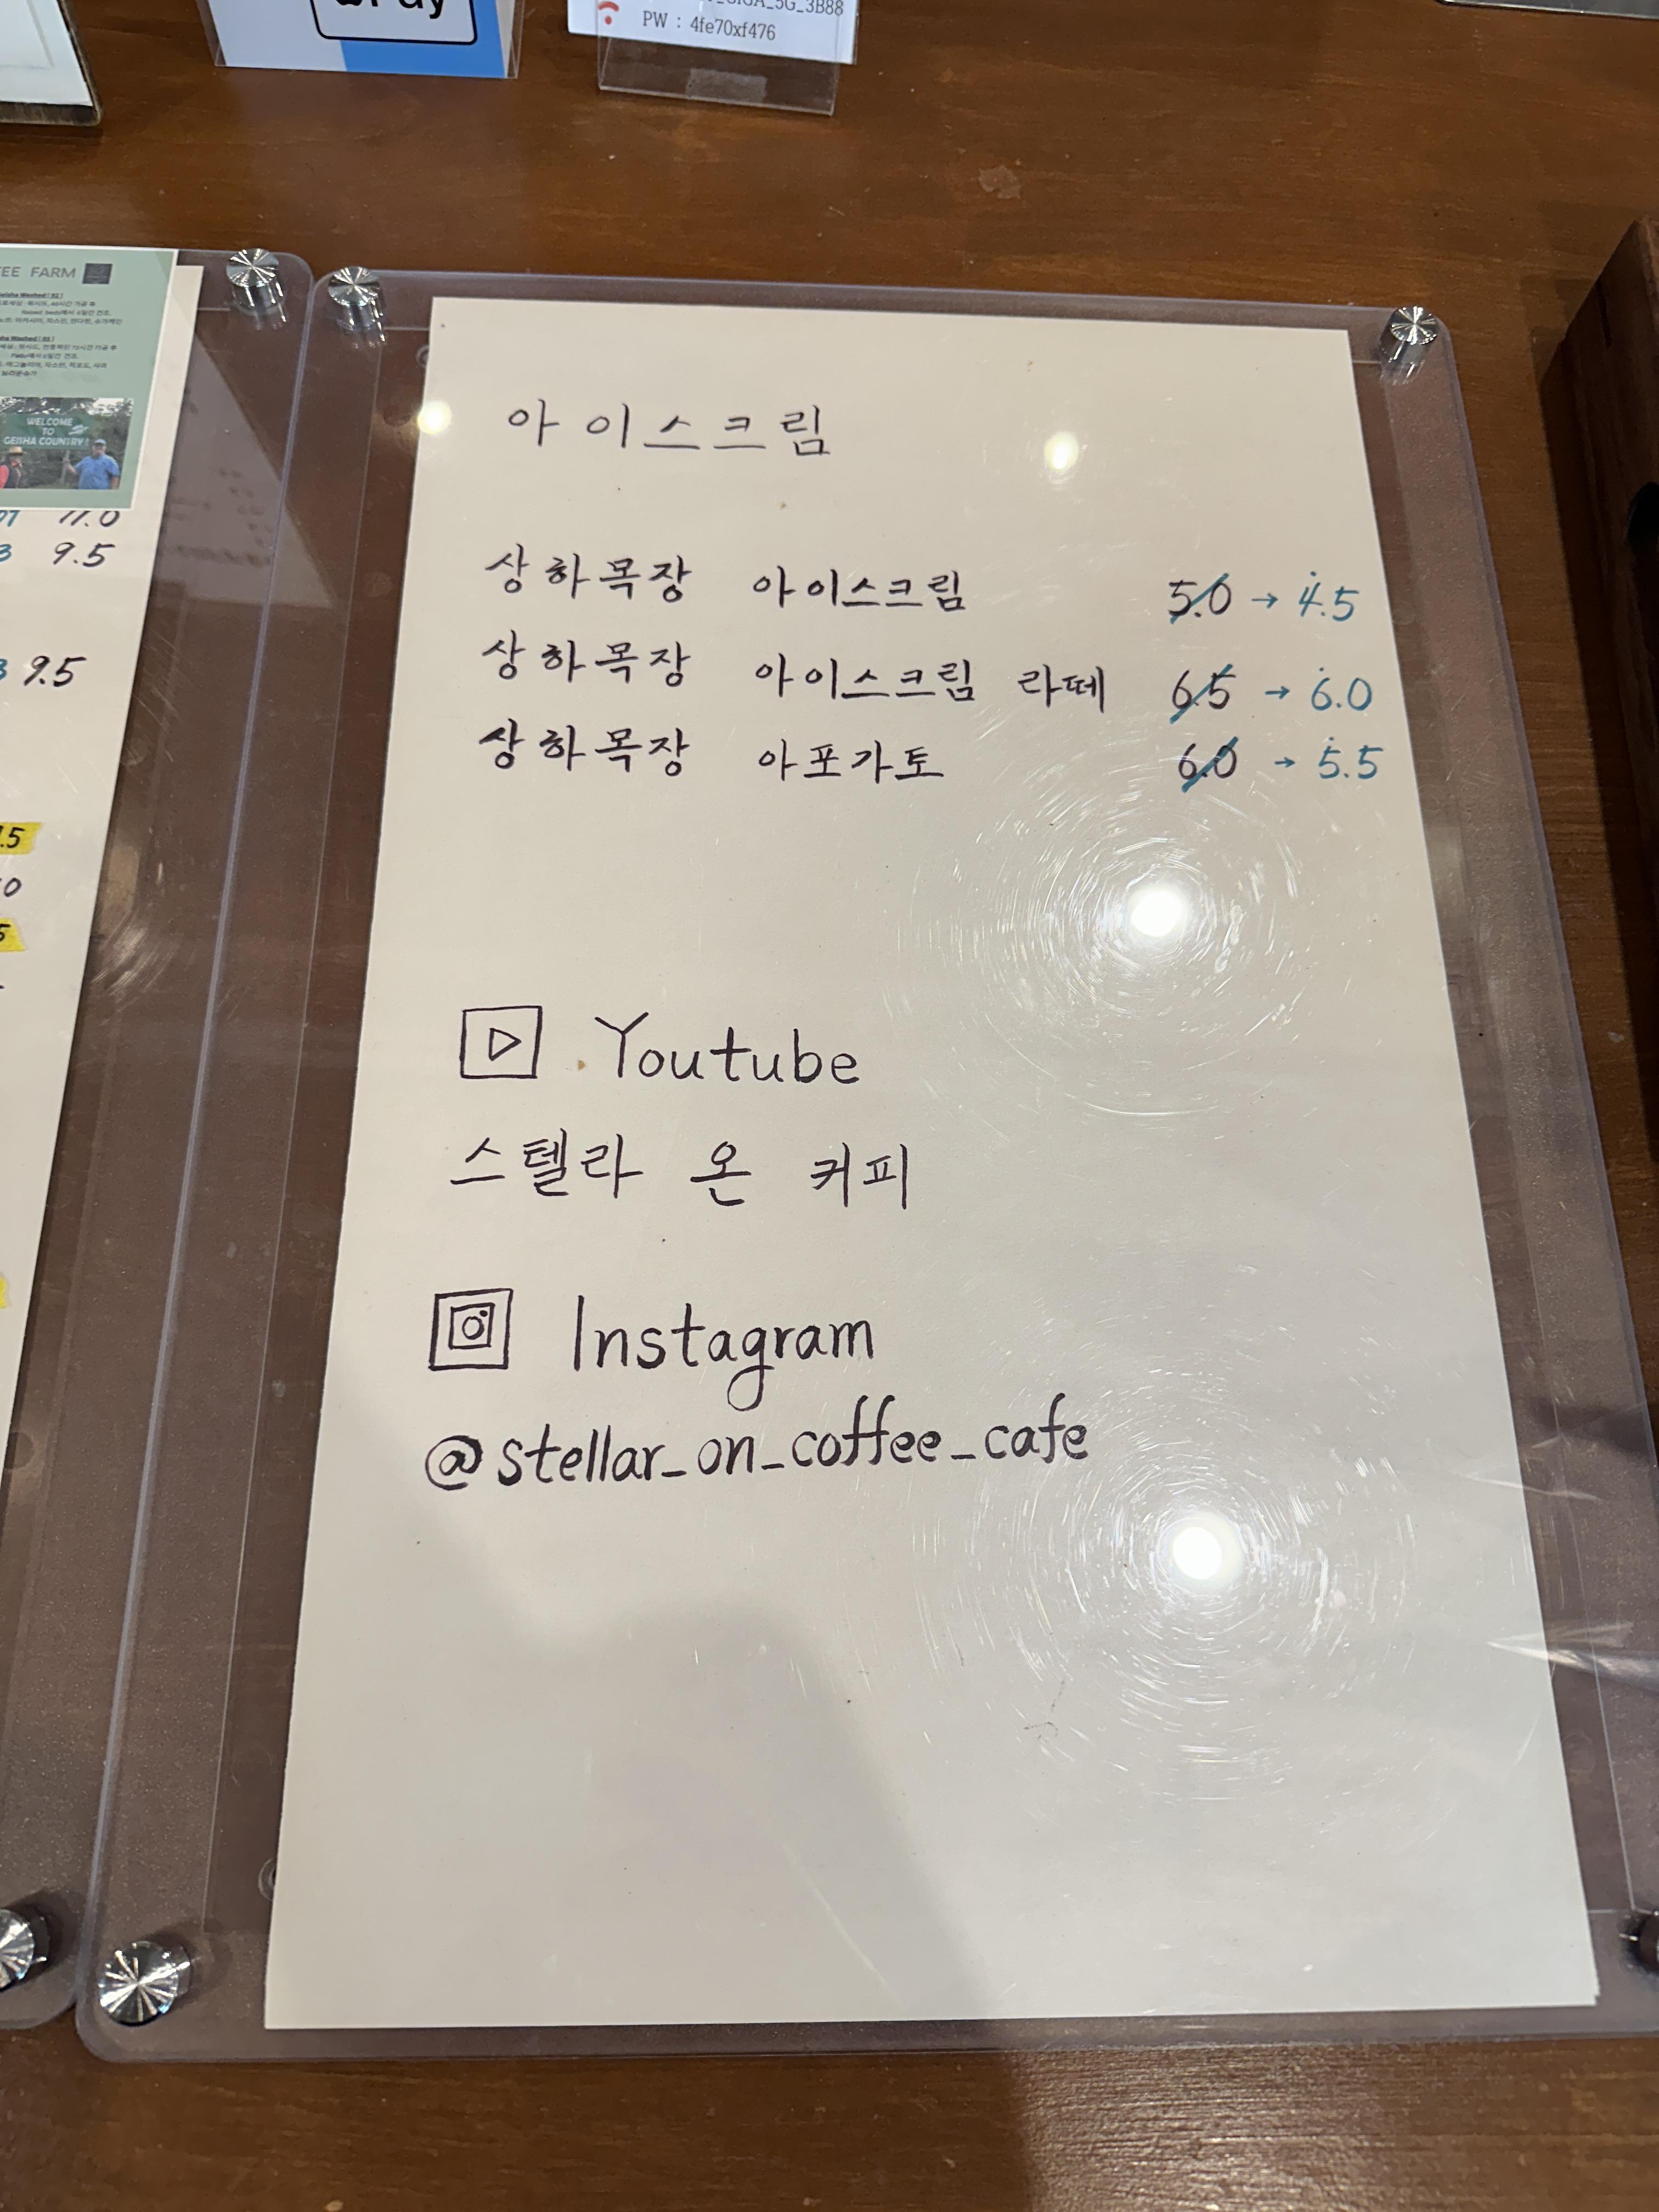 Pay
5G_3B88
PW : 4fe70xf476
FARM
WELCOME
TO
GEISHA COUNTRY!
11.0
9.5
9.5
아이스크림
상하목장 아이스크림 5.0 → 4.5
상하목장 아이스크림 라떼 6.5 → 6.0
상하목장 아포가토 6.0 → 5.5
Youtube
스텔라 온 커피
Instagram
@stellar_on_coffee_cafe